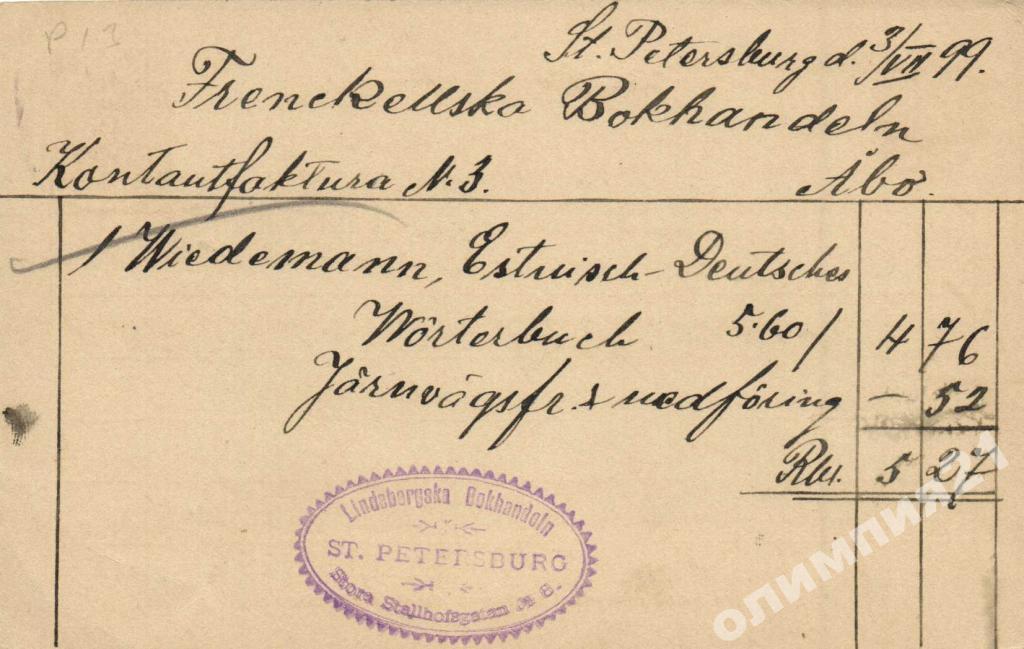 P 13
St. Petersburg d. 3/VII 99.
Frenckellska Bokhandeln
Kontantfaktura N. 3. Åbo.
1 Wiedemann, Estnisch-Deutsches
Wörterbuch 5.60 / 4 76
Järnvägsfr. & nedföring — 52
Rbl. 5 27
Lindebergska Bokhandeln
ST. PETERSBURG
Stora Stallhofsgatan № 6.
олимпия21